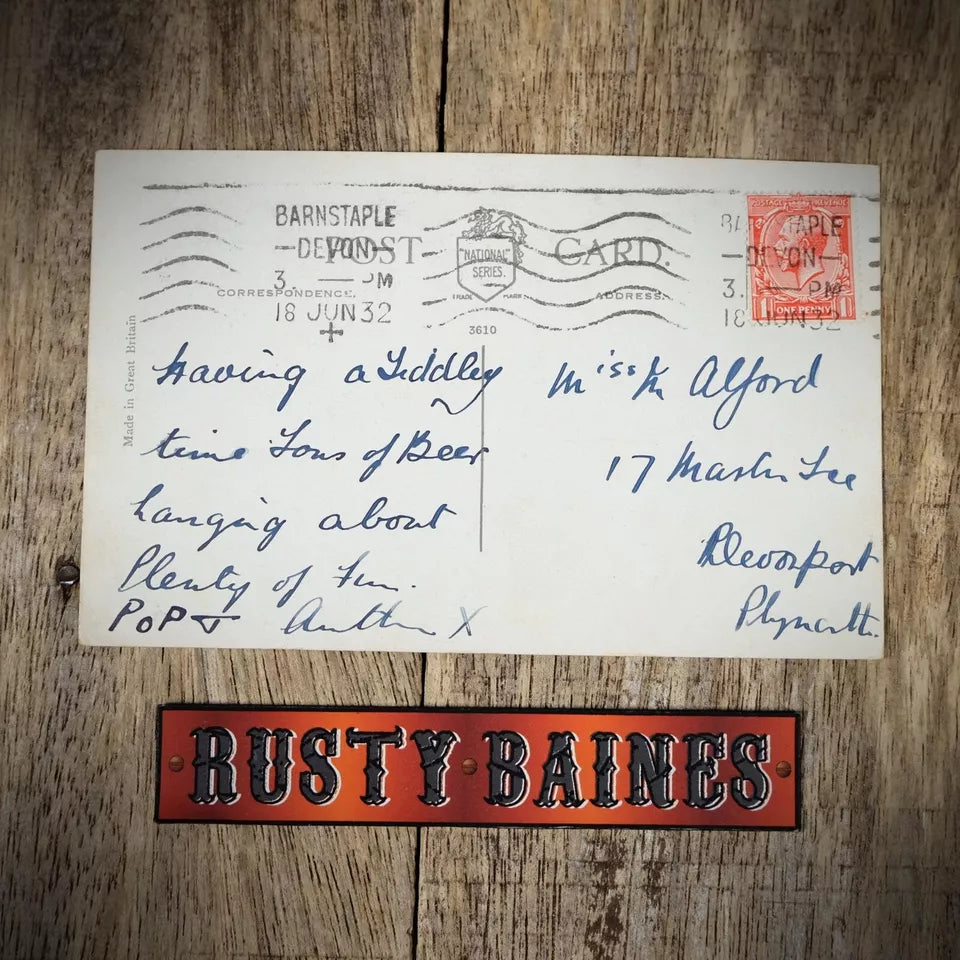 BARNSTAPLE
DEVON
3. PM
18 JUN 32
POST CARD.
"NATIONAL" SERIES.
TRADE MARK
CORRESPONDENCE.
ADDRESS.
3610
Made in Great Britain
BARNSTAPLE
DEVON
3. PM
18 JUN 32
POSTAGE REVENUE
ONE PENNY
Having a Tiddley
time Tons of Beer
hanging about
Plenty of Fun.
POP
Miss M Alford
17 Tce
Devonport
Plymouth.
RUSTY BAINES